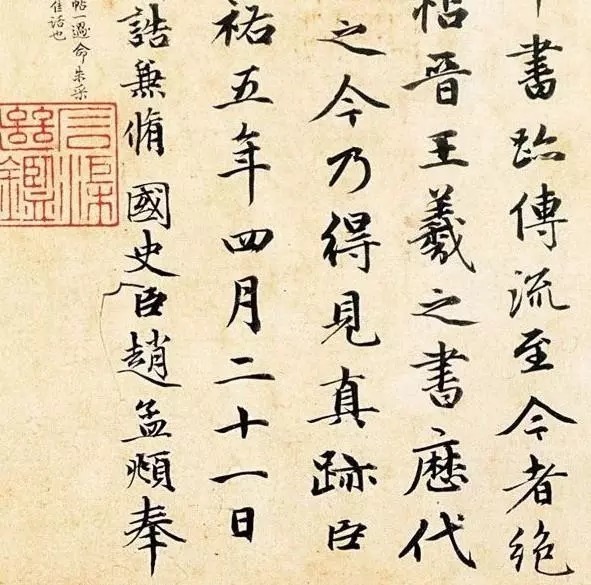 書跡傳流至今者絶
帖晉王羲之書歷代
之今乃得見真跡臣
祐五年四月二十一日
誥兼脩國史臣趙孟頫奉
帖一過命朱采
佳話也
石渠繼鑑